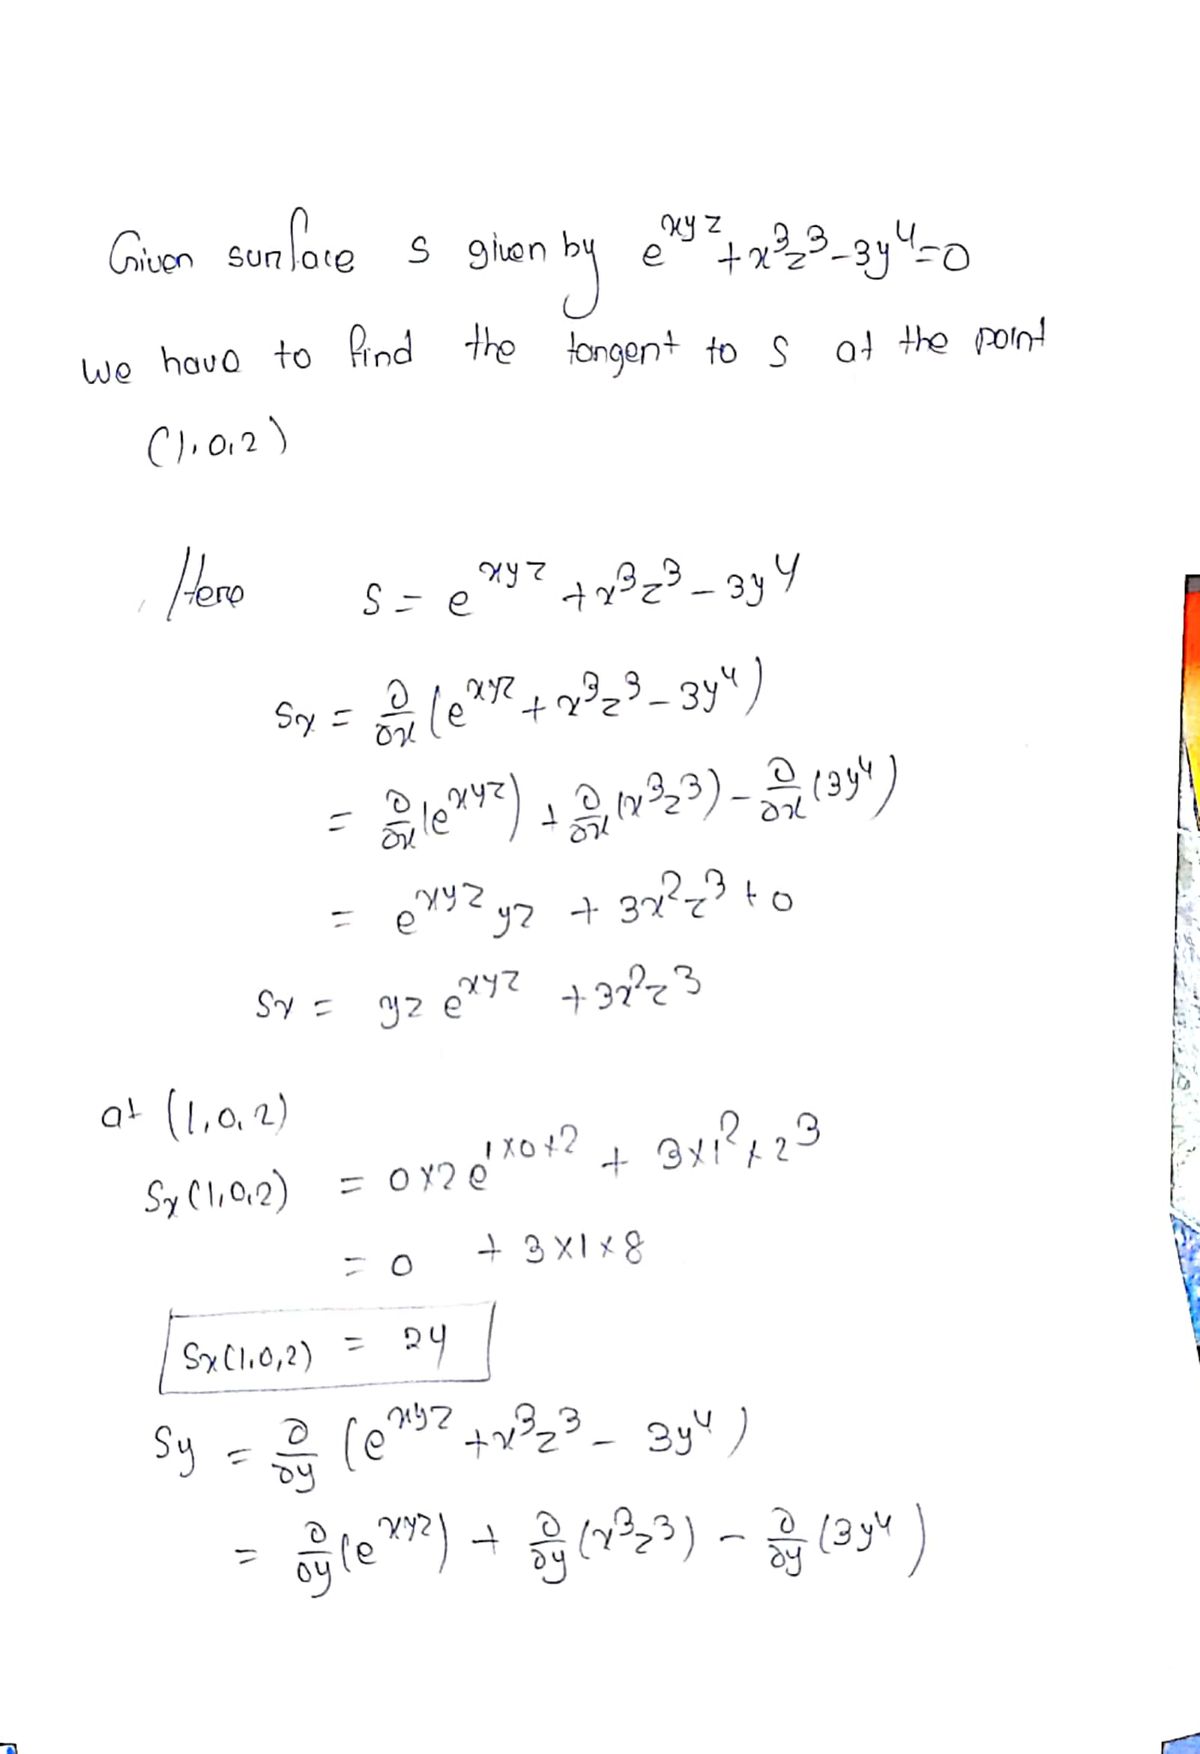 Given surface S given by e^{xyz} + x^3z^3 - 3y^4 = 0
we have to find the tangent to S at the point
(1,0,2)
Here S = e^{xyz} + x^3z^3 - 3y^4
Sx = ∂/∂x (e^{xyz} + x^3z^3 - 3y^4)
= ∂/∂x (e^{xyz}) + ∂/∂x (x^3z^3) - ∂/∂x (3y^4)
= e^{xyz} yz + 3x^2z^3 + 0
Sx = yz e^{xyz} + 3x^2z^3
at (1,0,2)
Sx(1,0,2) = 0×2 e^{1×0×2} + 3×1^2×2^3
= 0 + 3×1×8
Sx(1,0,2) = 24
Sy = ∂/∂y (e^{xyz} + x^3z^3 - 3y^4)
= ∂/∂y (e^{xyz}) + ∂/∂y (x^3z^3) - ∂/∂y (3y^4)